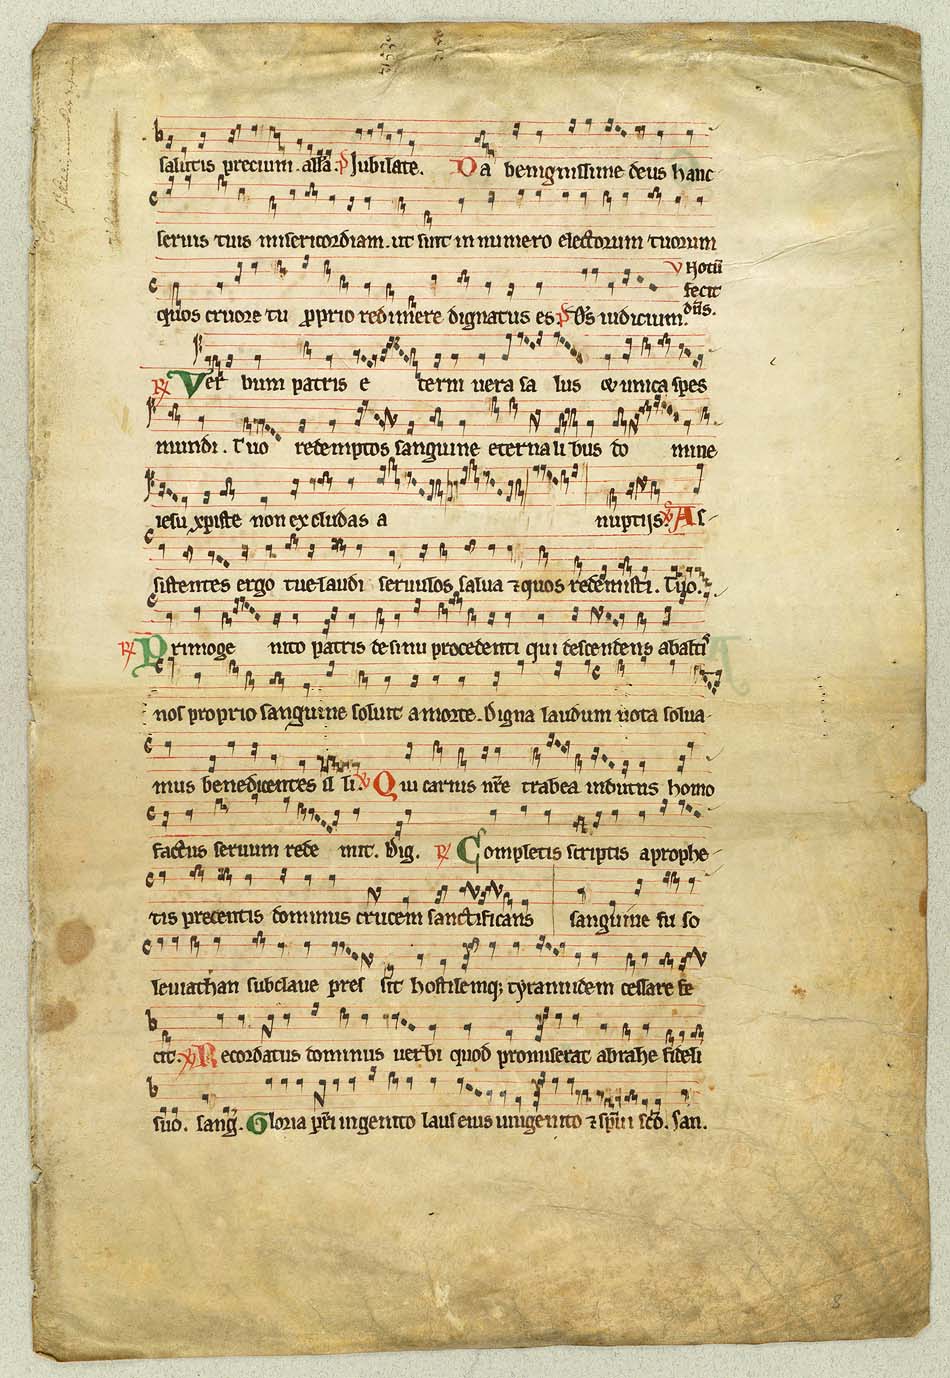 salutis precium. alła. p̄ Jubilate. Da benignissime deus hanc
seruis tuis misericordiam. ut sint in numero electorum tuorum
V Notū
fecit
quos cruore tu p̱prio redimere dignatus es. p̄ D̄s iudicium. dn̄s.
R̸ Ver bum patris e terni uera sa lus et unica spes
mundi. Tuo redemptos sanguine eternalibus do mine
iesu xp̄iste non excludas a nuptijs. V̸ As
sistentes ergo tue laudi seruulos salua ⁊ quos redemisti. Tuo.
R̸ Primoge nito patris de sinu procedenti qui descendens ab alti
nos proprio sanguine soluit a morte. Digna laudum uota solua
mus benedicentes il li. V̸ Qui carnis nr̄e trabea indutus homo
factus seruum rede mit. Dig. R̸ Completis scriptis a prophe
tis precentis dominus crucem sanctificans sanguine su so
leuiathan subclaue pres sit hostilemq; tyrannidem cessare fe
cit. V̸ Recordatus dominus uerbi quod promiserat abrahe fideli
suo. sang. Gloria pr̄i ingenito laus eius unigenito ⁊ sp̄ui sc̄o. San.
8